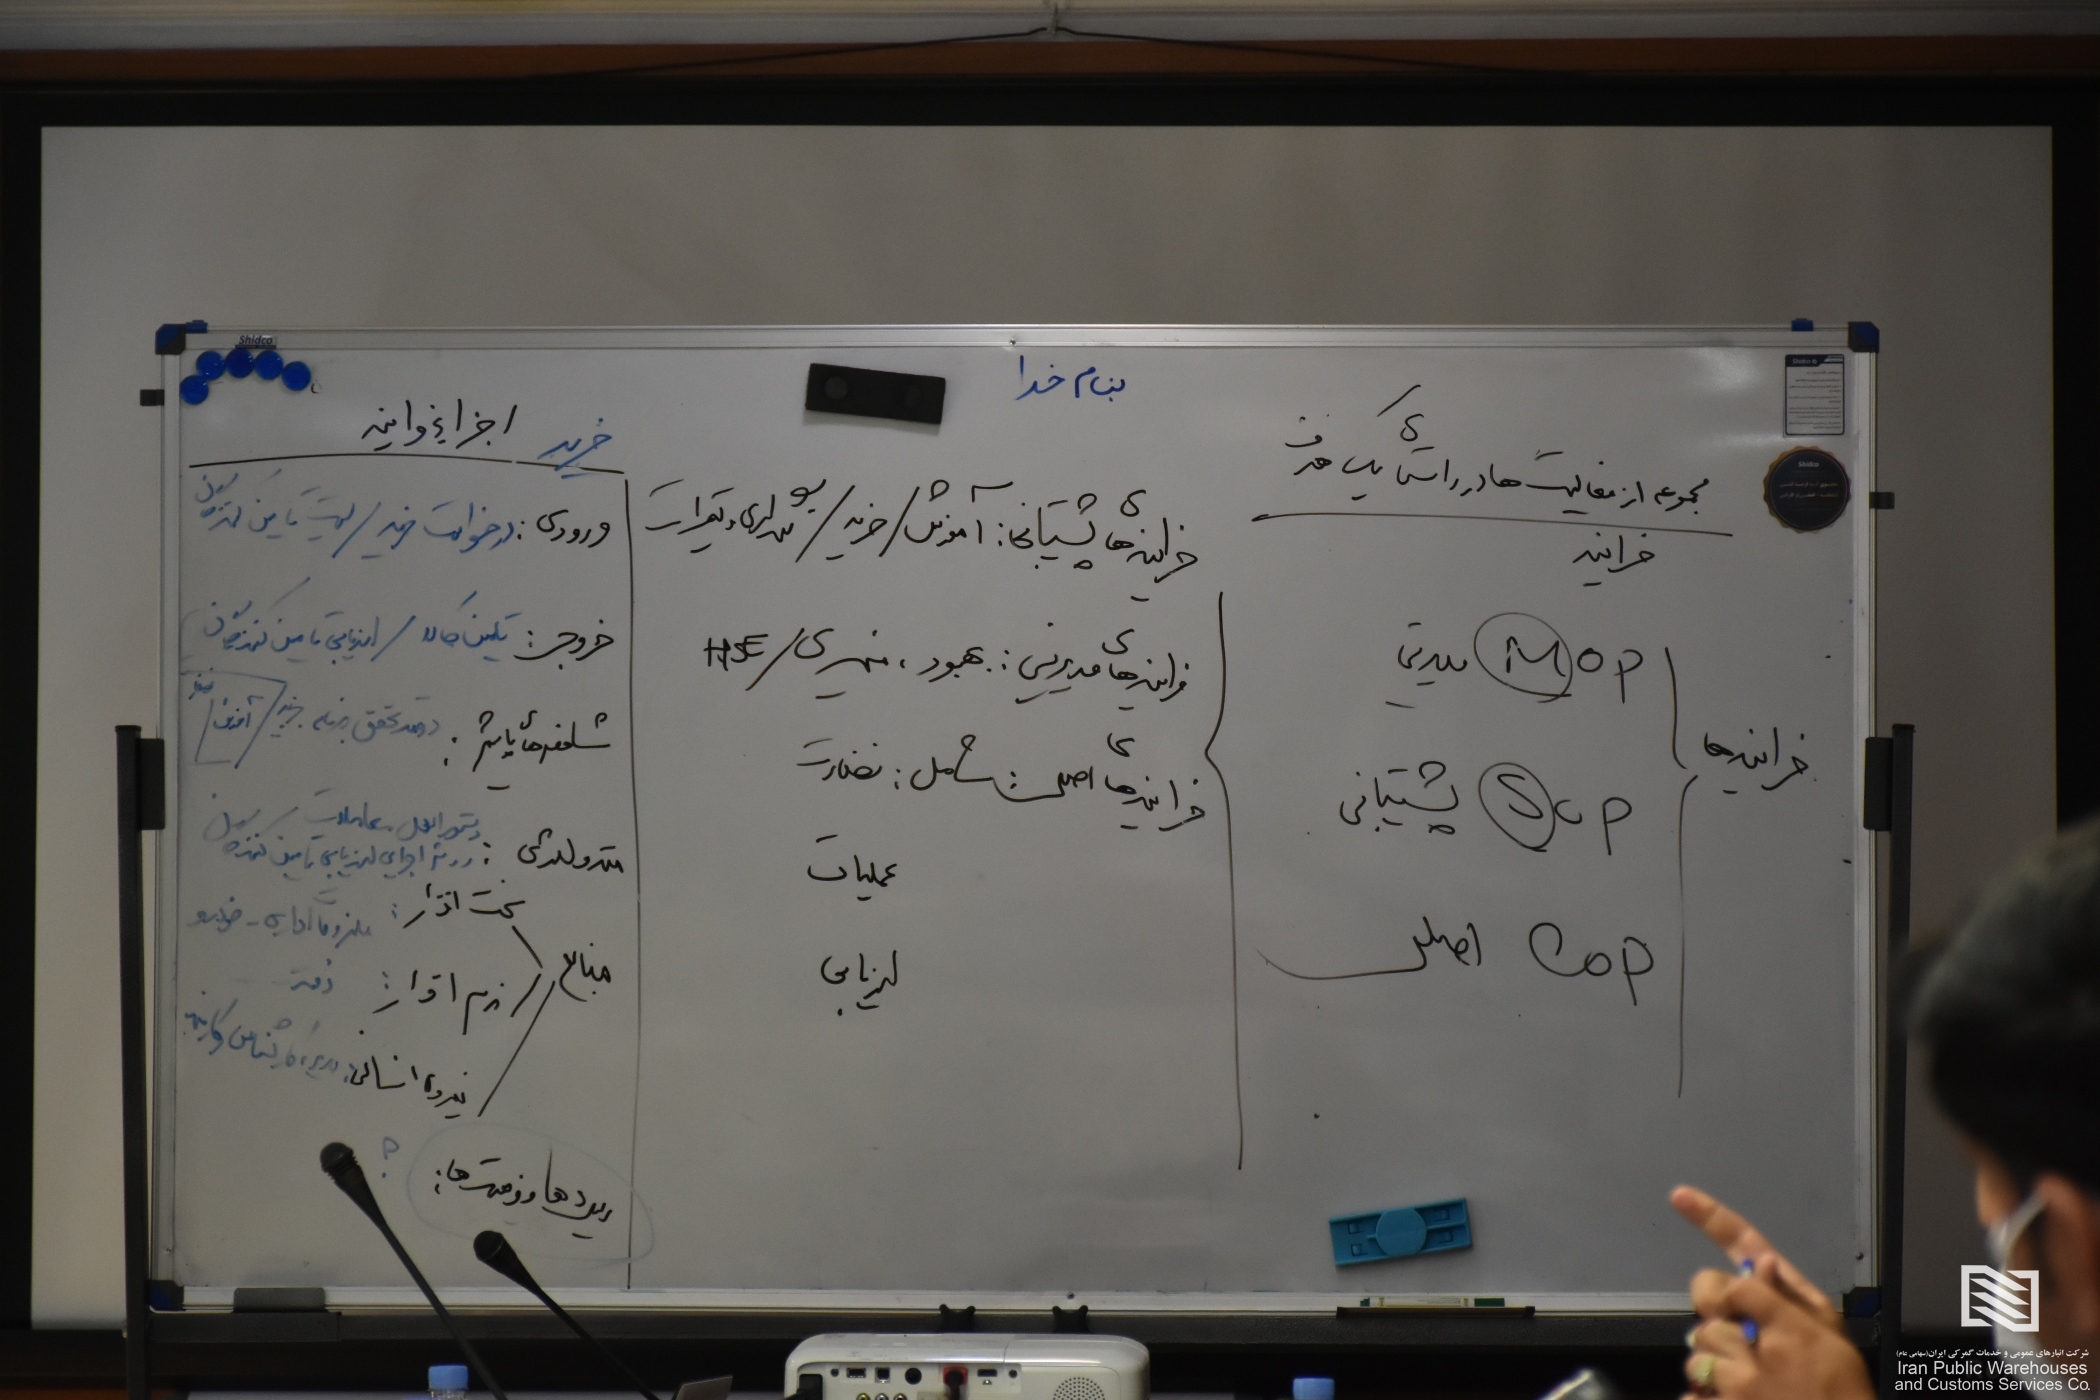 بنام خدا
مجموعه از فعالیت ها در راستای یک هدف
فرایند
فرایندها
MOP مدیریتی
SOP پشتیبانی
COP اصلی
فرایندهای پشتیبانی: آموزش / خرید /
فرایندهای مدیریتی: بهبود، ممیزی / HSE
فرایندهای اصلی: شامل: نظارت
عملیات
ارزیابی
اجزاء فرایند
خرید
ورودی: درخواست خرید / لیست تامین کنندگان
خروجی: تامین کالا / ارزیابی تامین کنندگان
شاخصهای پایش: درصد تحقق برنامه خرید / آموزش
متدولوژی: دستورالعمل معاملات
روش اجرایی ارزیابی تامین کننده
منابع
سخت افزار: ملزومات اداری - خودرو
نرم افزار:
نیروی انسانی: مدیر، کارشناس
ریسک ها و فرصت ها:
؟
Shidco
شرکت انبارهای عمومی و خدمات گمرکی ایران (سهامی عام)
Iran Public Warehouses
and Customs Services Co.